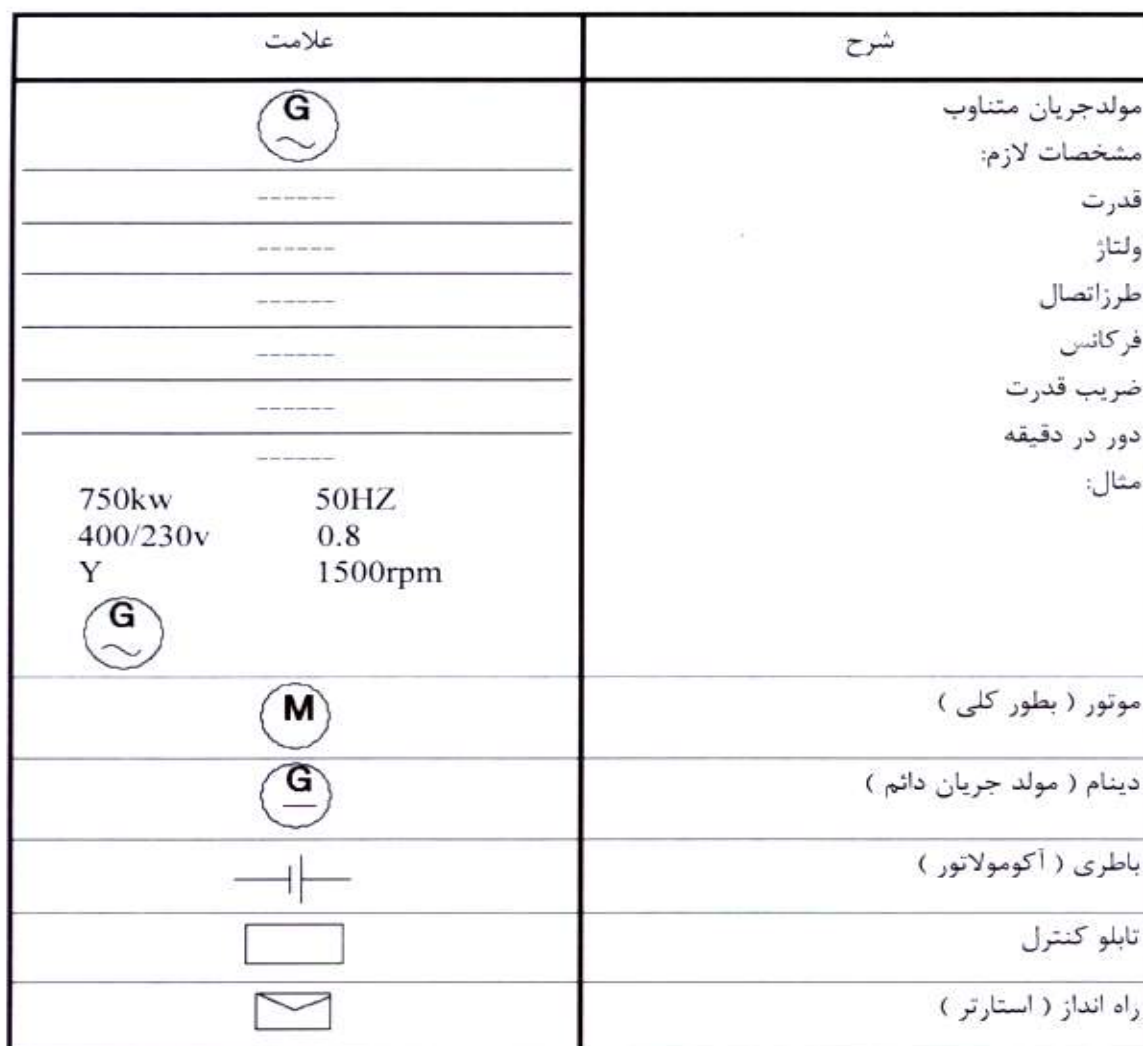 شرح
علامت
مولدجریان متناوب
مشخصات لازم:
قدرت
ولتاژ
طرزاتصال
فرکانس
ضریب قدرت
دور در دقیقه
مثال:
G
------
------
------
------
------
------
750kw 50HZ
400/230v 0.8
Y 1500rpm
G
موتور ( بطور کلی )
M
دینام ( مولد جریان دائم )
G
باطری ( آکومولاتور )
تابلو کنترل
راه انداز ( استارتر )